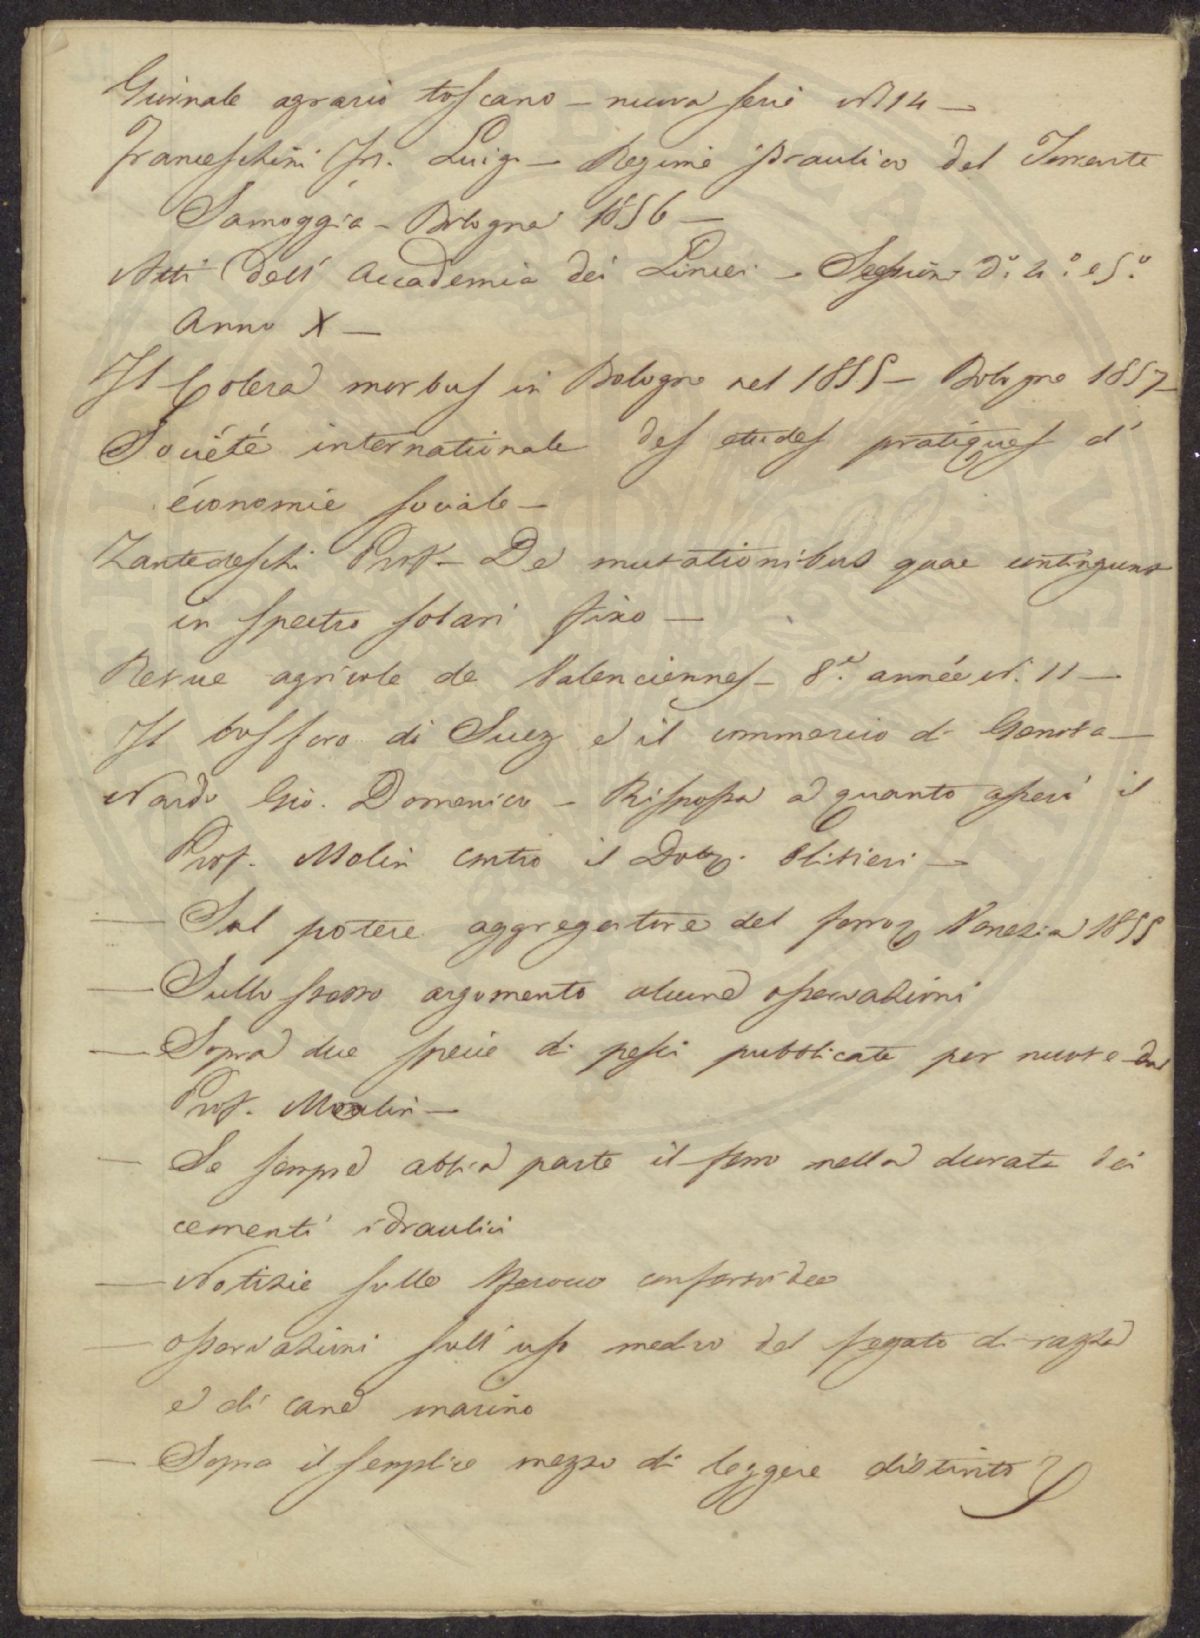 Giornale agrario toscano – nuova serie N 14 –
Franceschini Luigi – Regime idraulico del Torrente
Samoggia – Bologna 1856 –
Atti dell' Accademia dei Lincei – Sessione 4.ª e 5.ª
Anno X –
Il Colera morbus in Bologna nel 1855 – Bologna 1857
Société internationale des etudes pratiques d'
économie sociale –
Zantedeschi Prof. – De mutationibus quae contingunt
in spectro solari fixo –
Revue agricole de Valenciennes – 8.e année N. 11 –
Il bosforo di Suez e il commercio di Genova –
Nardo Gio. Domenico – Risposta a quanto asserì il
Prof. Molin contro il Dott. Olivieri –
— Sul potere aggregatore del ferro Venezia 1855
— Sullo stesso argomento alcune osservazioni
— Sopra due specie di pesci pubblicate per nuove dal
Prof. Molin –
— Se sempre abbia parte il ferro nella durata dei
cementi idraulici
— Notizie sullo
— Osservazioni sull' uso medico del fegato di razza
e di cane marino
— Sopra il semplice mezzo di leggere distinto